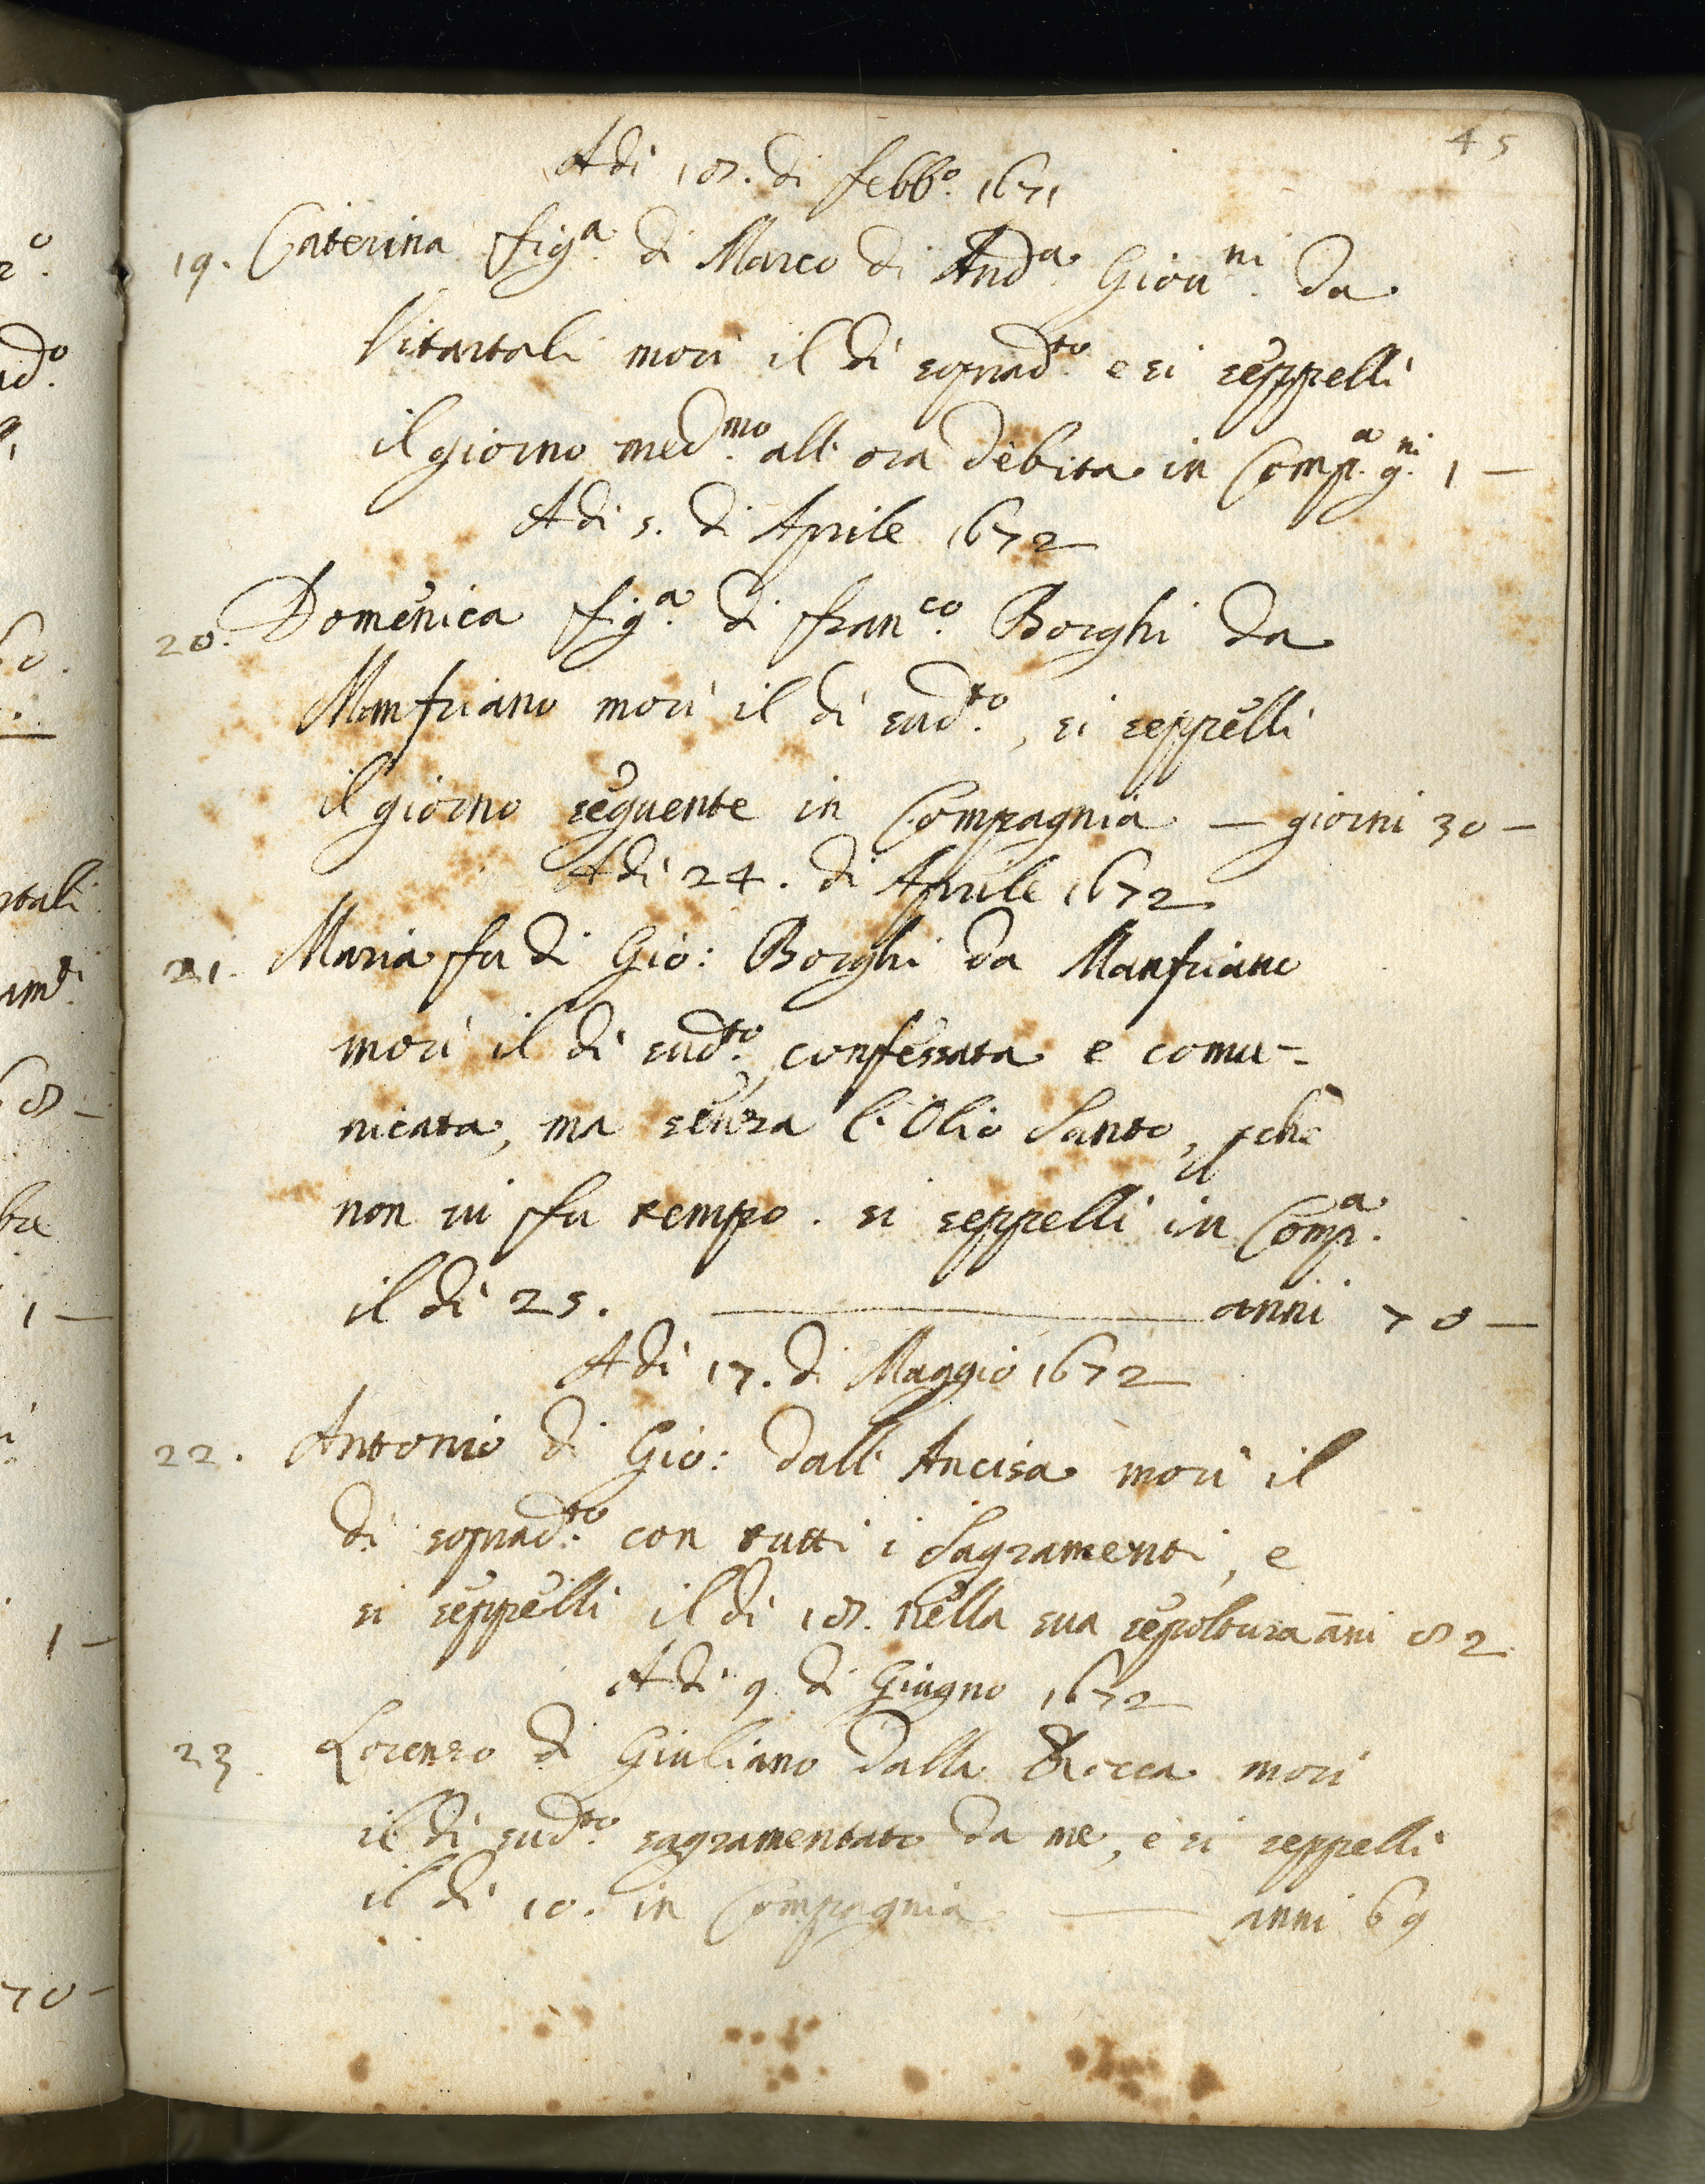 45
Adi 18. di febb.o 1671
19. Caterina fig.a di Marco di And.a Giou.ni da
Vitartali morì il dì soprad.to e si seppellì
il giorno med.mo all' ora debita in Comp.a g.ni 1 —
Adi 5. di Aprile 1672
20. Domenica fig.a di fran.co Borghi da
Manfriano morì il dì sud.to, si seppellì
il giorno seguente in Compagnia — giorni 30 —
Adi 24. di Aprile 1672
21. Maria fu di Gio: Borghi da Manfriano
morì il dì sud.to, confessata e comu-
nicata, ma senza l'Olio Santo, pche
non vi fu tempo. si seppellì in Comp.a
il dì 25. — anni 70 —
Adi 17. di Maggio 1672
22. Antonio di Gio: dall' Ancisa morì il
dì soprad.to con tutti i Sagramenti, e
si seppellì il dì 18. nella sua sepoltura ani 82
Adi 9 di Giugno 1672
23. Lorenzo di Giuliano dalla Rocca morì
il dì sud.to sagramentato da me, e si seppellì
il dì 10. in Compagnia — anni 69